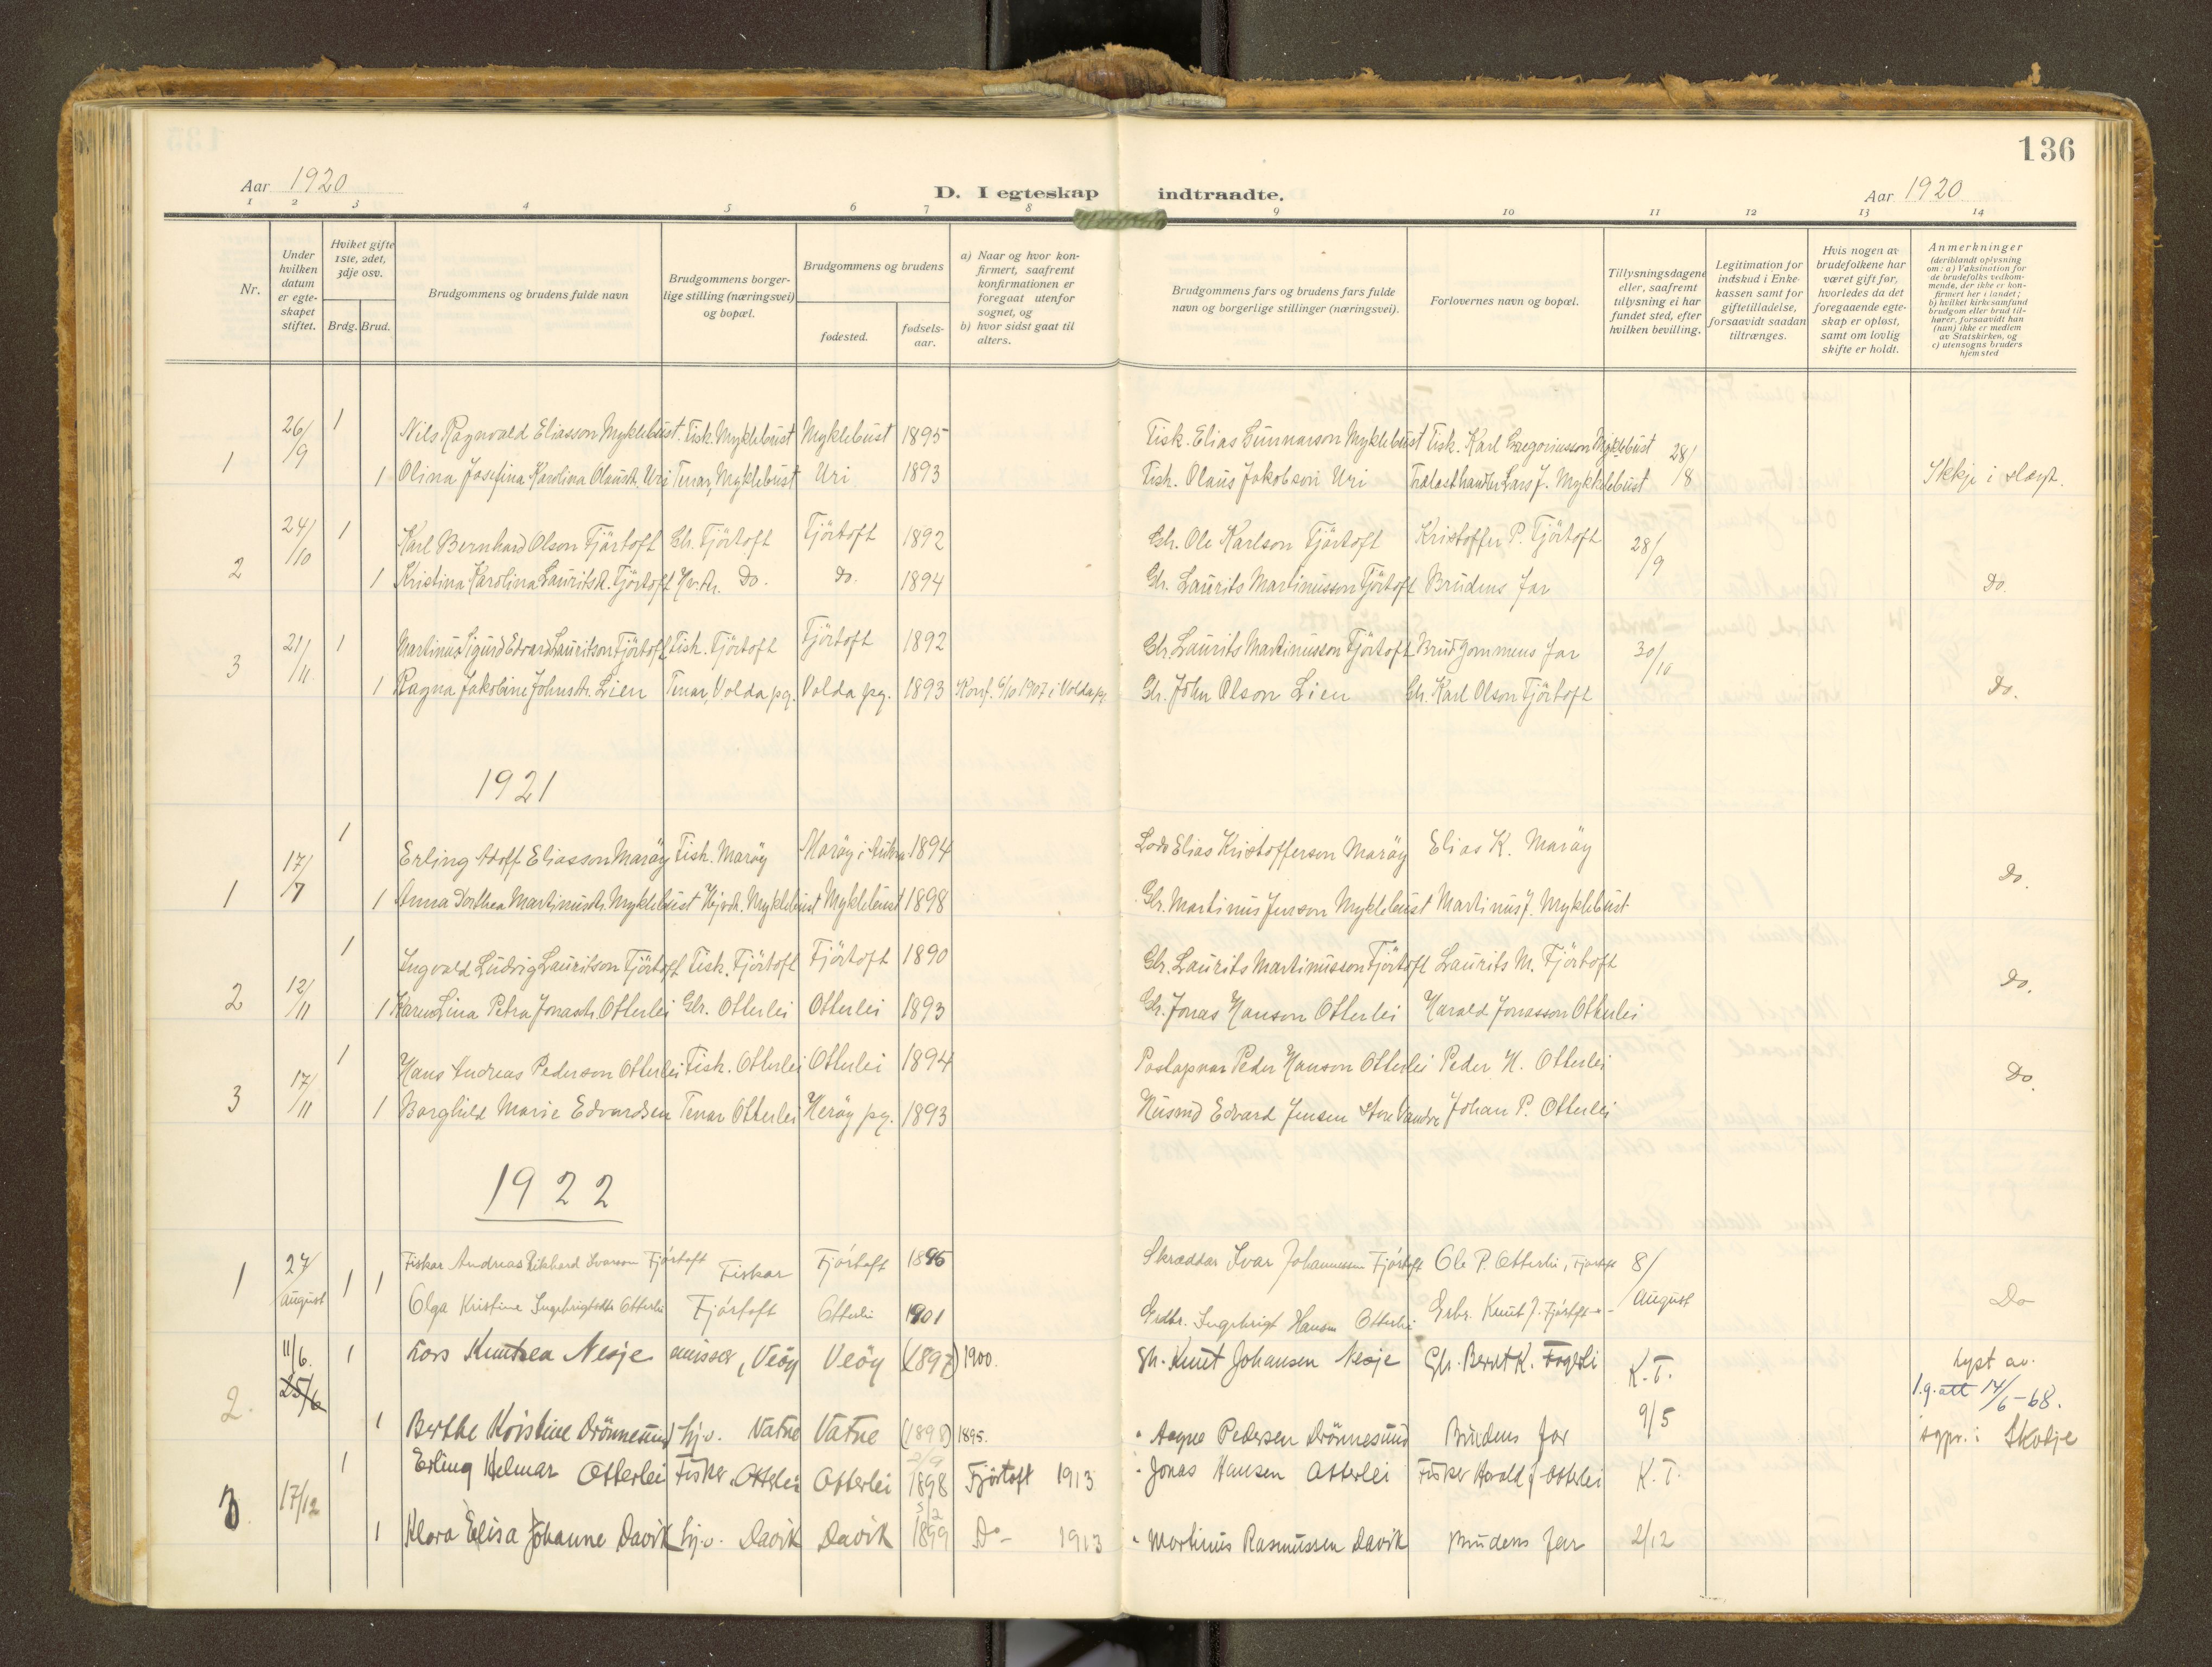 136
Aar 1920
D. I egteskap indtraadte.
Aar 1920
1 2 3 4 5 6 7 8 9 10 11 12 13 14
Nr.
Under hvilken datum er egteskapet stiftet.
Hviket gifte 1ste, 2det, 3dje osv.
Brdg. Brud.
Brudgommens og brudens fulde navn
Brudgommens borgerlige stilling (næringsvei) og bopæl.
Brudgommens og brudens
fødested.
fødselsaar.
a) Naar og hvor konfirmert, saafremt konfirmationen er foregaat utenfor sognet, og
b) hvor sidst gaat til alters.
Brudgommens fars og brudens fars fulde navn og borgerlige stillinger (næringsvei).
Forlovernes navn og bopæl.
Tillysningsdagene eller, saafremt tillysning ei har fundet sted, efter hvilken bevilling.
Legitimation for indskud i Enkekassen samt for giftetilladelse, forsaavidt saadan tiltrænges.
Hvis nogen av brudefolkene har været gift før, hvorledes da det foregaaende egteskap er opløst, samt om lovlig skifte er holdt.
Anmerkninger (deriblandt oplysning om: a) Vaksination for de brudefolks vedkommende, der ikke er konfirmert her i landet; b) hvilket kirkesamfund brudgom eller brud tilhører, forsaavidt han (hun) ikke er medlem av Statskirken, og c) utensogns bruders hjemsted
26/9 1 Nils Ragnvald Eliasson Myklebust. Fisk. Myklebust Myklebust 1895 Fisk. Elias Gunnarson Myklebust Fisk. Karl Gregoriusson Myklebust 28/8
1 1 Olina Josefina Karolina Olausdt. Uri Tenar, Myklebust Uri 1893 Fisk. Olaus Jakobson Uri Trælasthandler Lars J. Myklebust Ikkje i slægt.
24/10 1 Karl Bernhard Olson Fjörtoft Gbr. Fjörtoft Fjörtoft 1892 Gbr. Ole Karlson Fjörtoft Kristoffer P. Fjörtoft 28/9
2 1 Kristina Karolina Lauritsdt. Fjörtoft Do. do. 1894 Gbr. Laurits Martinusson Fjörtoft Brudens far do.
21/11 1 Martinus Sigurd Edvard Lauritson Fjörtoft Fisk. Fjörtoft Fjörtoft 1892 Gbr. Laurits Martinusson Fjörtoft Brudgommens far 30/10
3 1 Ragna Jakobine Johnsdt. Lien Tenar, Volda pg. Volda pg. 1893 Konf. 6/10 1907 i Volda pg. Gbr. John Olson Lien Gbr. Karl Olson Fjörtoft do.
1921
17/7 1 Erling Adolf Eliasson Maröy Fisk. Maröy Maröy i Aukra 1894 Lods Elias Kristofferson Maröy Elias K. Maröy
1 1 Anna Dorthea Martinusdt. Myklebust Hj.dt. Myklebust Myklebust 1898 Gbr. Martinus Jenson Myklebust Martinus J. Myklebust do.
12/11 1 Ingvald Ludvig Lauritson Fjörtoft Fisk. Fjörtoft Fjörtoft 1890 Gbr. Laurits Martinusson Fjörtoft Laurits M. Fjörtoft
2 1 Karen Lina Petra Jonasdt. Otterlei Gbr. Otterlei Otterlei 1893 Gbr. Jonas Hanson Otterlei Harald Jonasson Otterlei do.
17/11 1 Hans Andreas Pederson Otterlei Fisk. Otterlei Otterlei 1894 Postapnar Peder Hanson Otterlei Peder H. Otterlei
3 1 Borghild Marie Edvardsen Tenar Otterlei Heröy pg. 1893 Husmd Edvard Jensen Johan P. Otterlei do
1922
1 27/August 1 1 Fiskar Andreas Rikhard Ivarson Fjörtoft Fiskar Fjörtoft 1895 Skræddar Ivar Johannessen Fjörtoft Ole P. Otterlei, Fjørtoft 8/August
Olga Kristine Ingebrigtsdtr Otterlei Fjörtoft Otterlei 1901 Gardbr. Ingebrigt Hansen Otterlei Knut J. Fjörtoft Do
2. 11/6. 25/6 1 Lars Knutsen Nesje Veöy Veöy (1897) 1900. Gb. Knut Johansen Nesje Gb. Berdt K. K.T. lyst av.
1.g. att 14/6-68.
1 Berthe Kristine Drönnesund hj.v. Vatne Vatne (1898) 1895. " Aagne Pedersen Drönnesund Brudens far 9/5 i Skodje
3 17/12 1 Erling Hilmar Otterlei Fisker Otterlei Otterlei 2/9 1898 Fjörtoft 1913 " Jonas Hansen Otterlei Fisker Harald J Otterlei K.T.
1 Klara Elisa Johanne Davik hj.v. Davik Davik 5/2 1899 Do- 1913 " Martinus Rasmussen Davik Brudens far 2/12